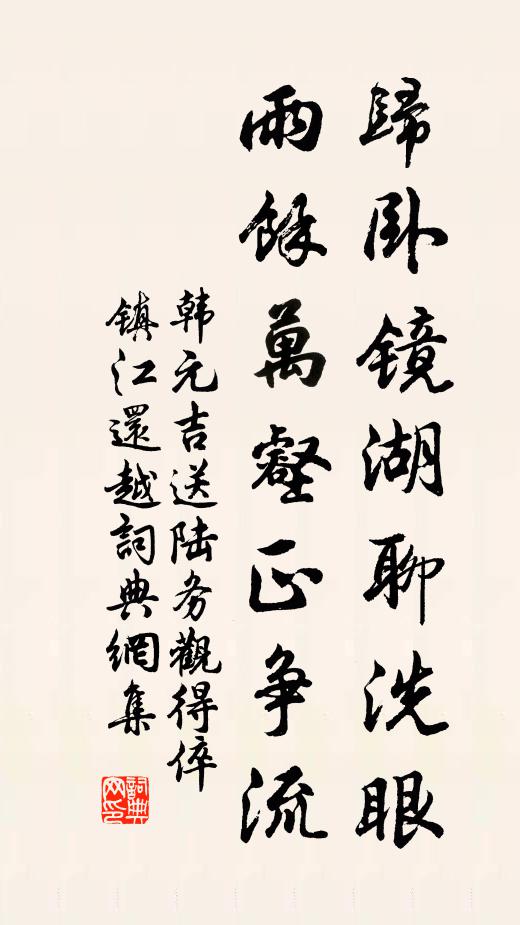 歸卧镜湖聊洗眼
雨餘萬壑正争流
韩元吉送陆务觀得倅
镇江還越詞典網集
詞典网印